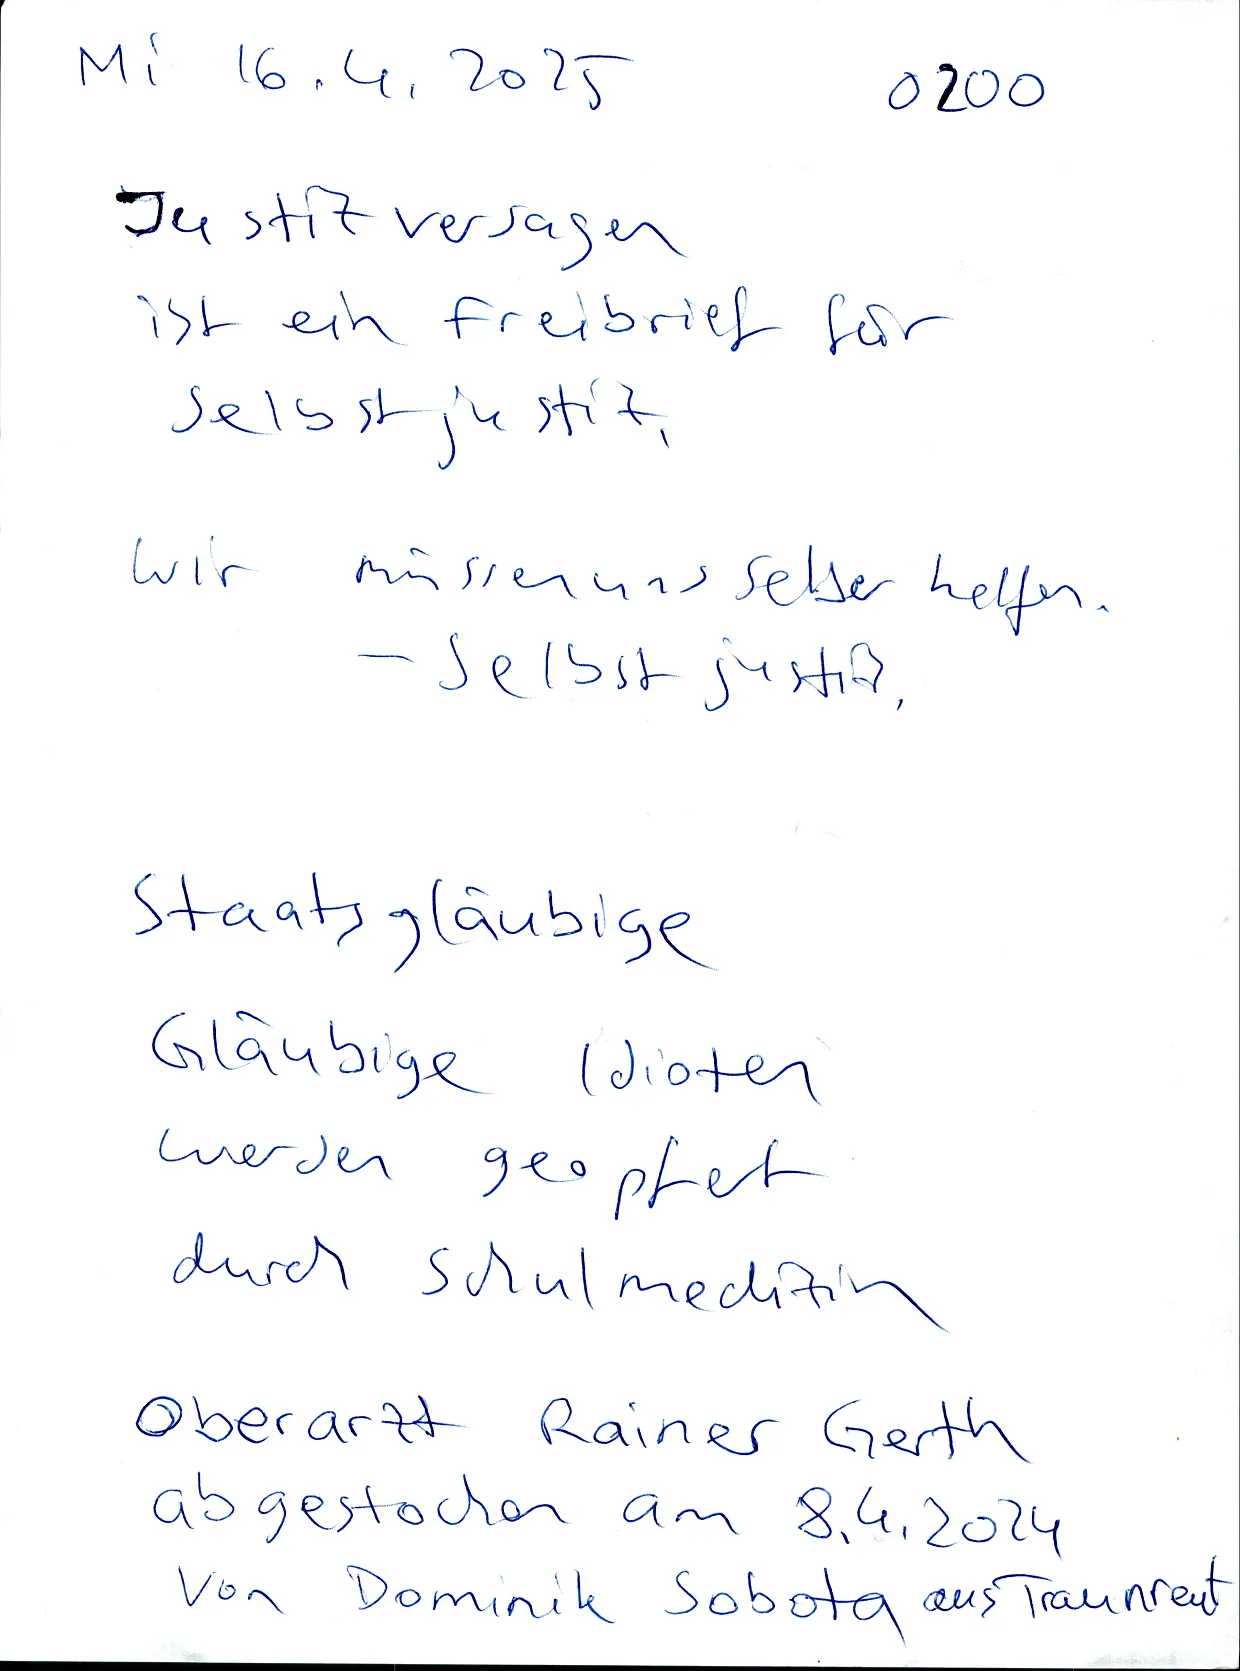 Mi 16.4.2025 0200
Justizversagen
ist ein Freibrief für
Selbstjustiz.
Wir müssen uns selber helfen.
– Selbstjustiz.
Staatsgläubige
Gläubige Idioten
werden geopfert
durch Schulmedizin
Oberarzt Rainer Gerth
abgestochen am 8.4.2024
von Dominik Sobota aus Traunreut